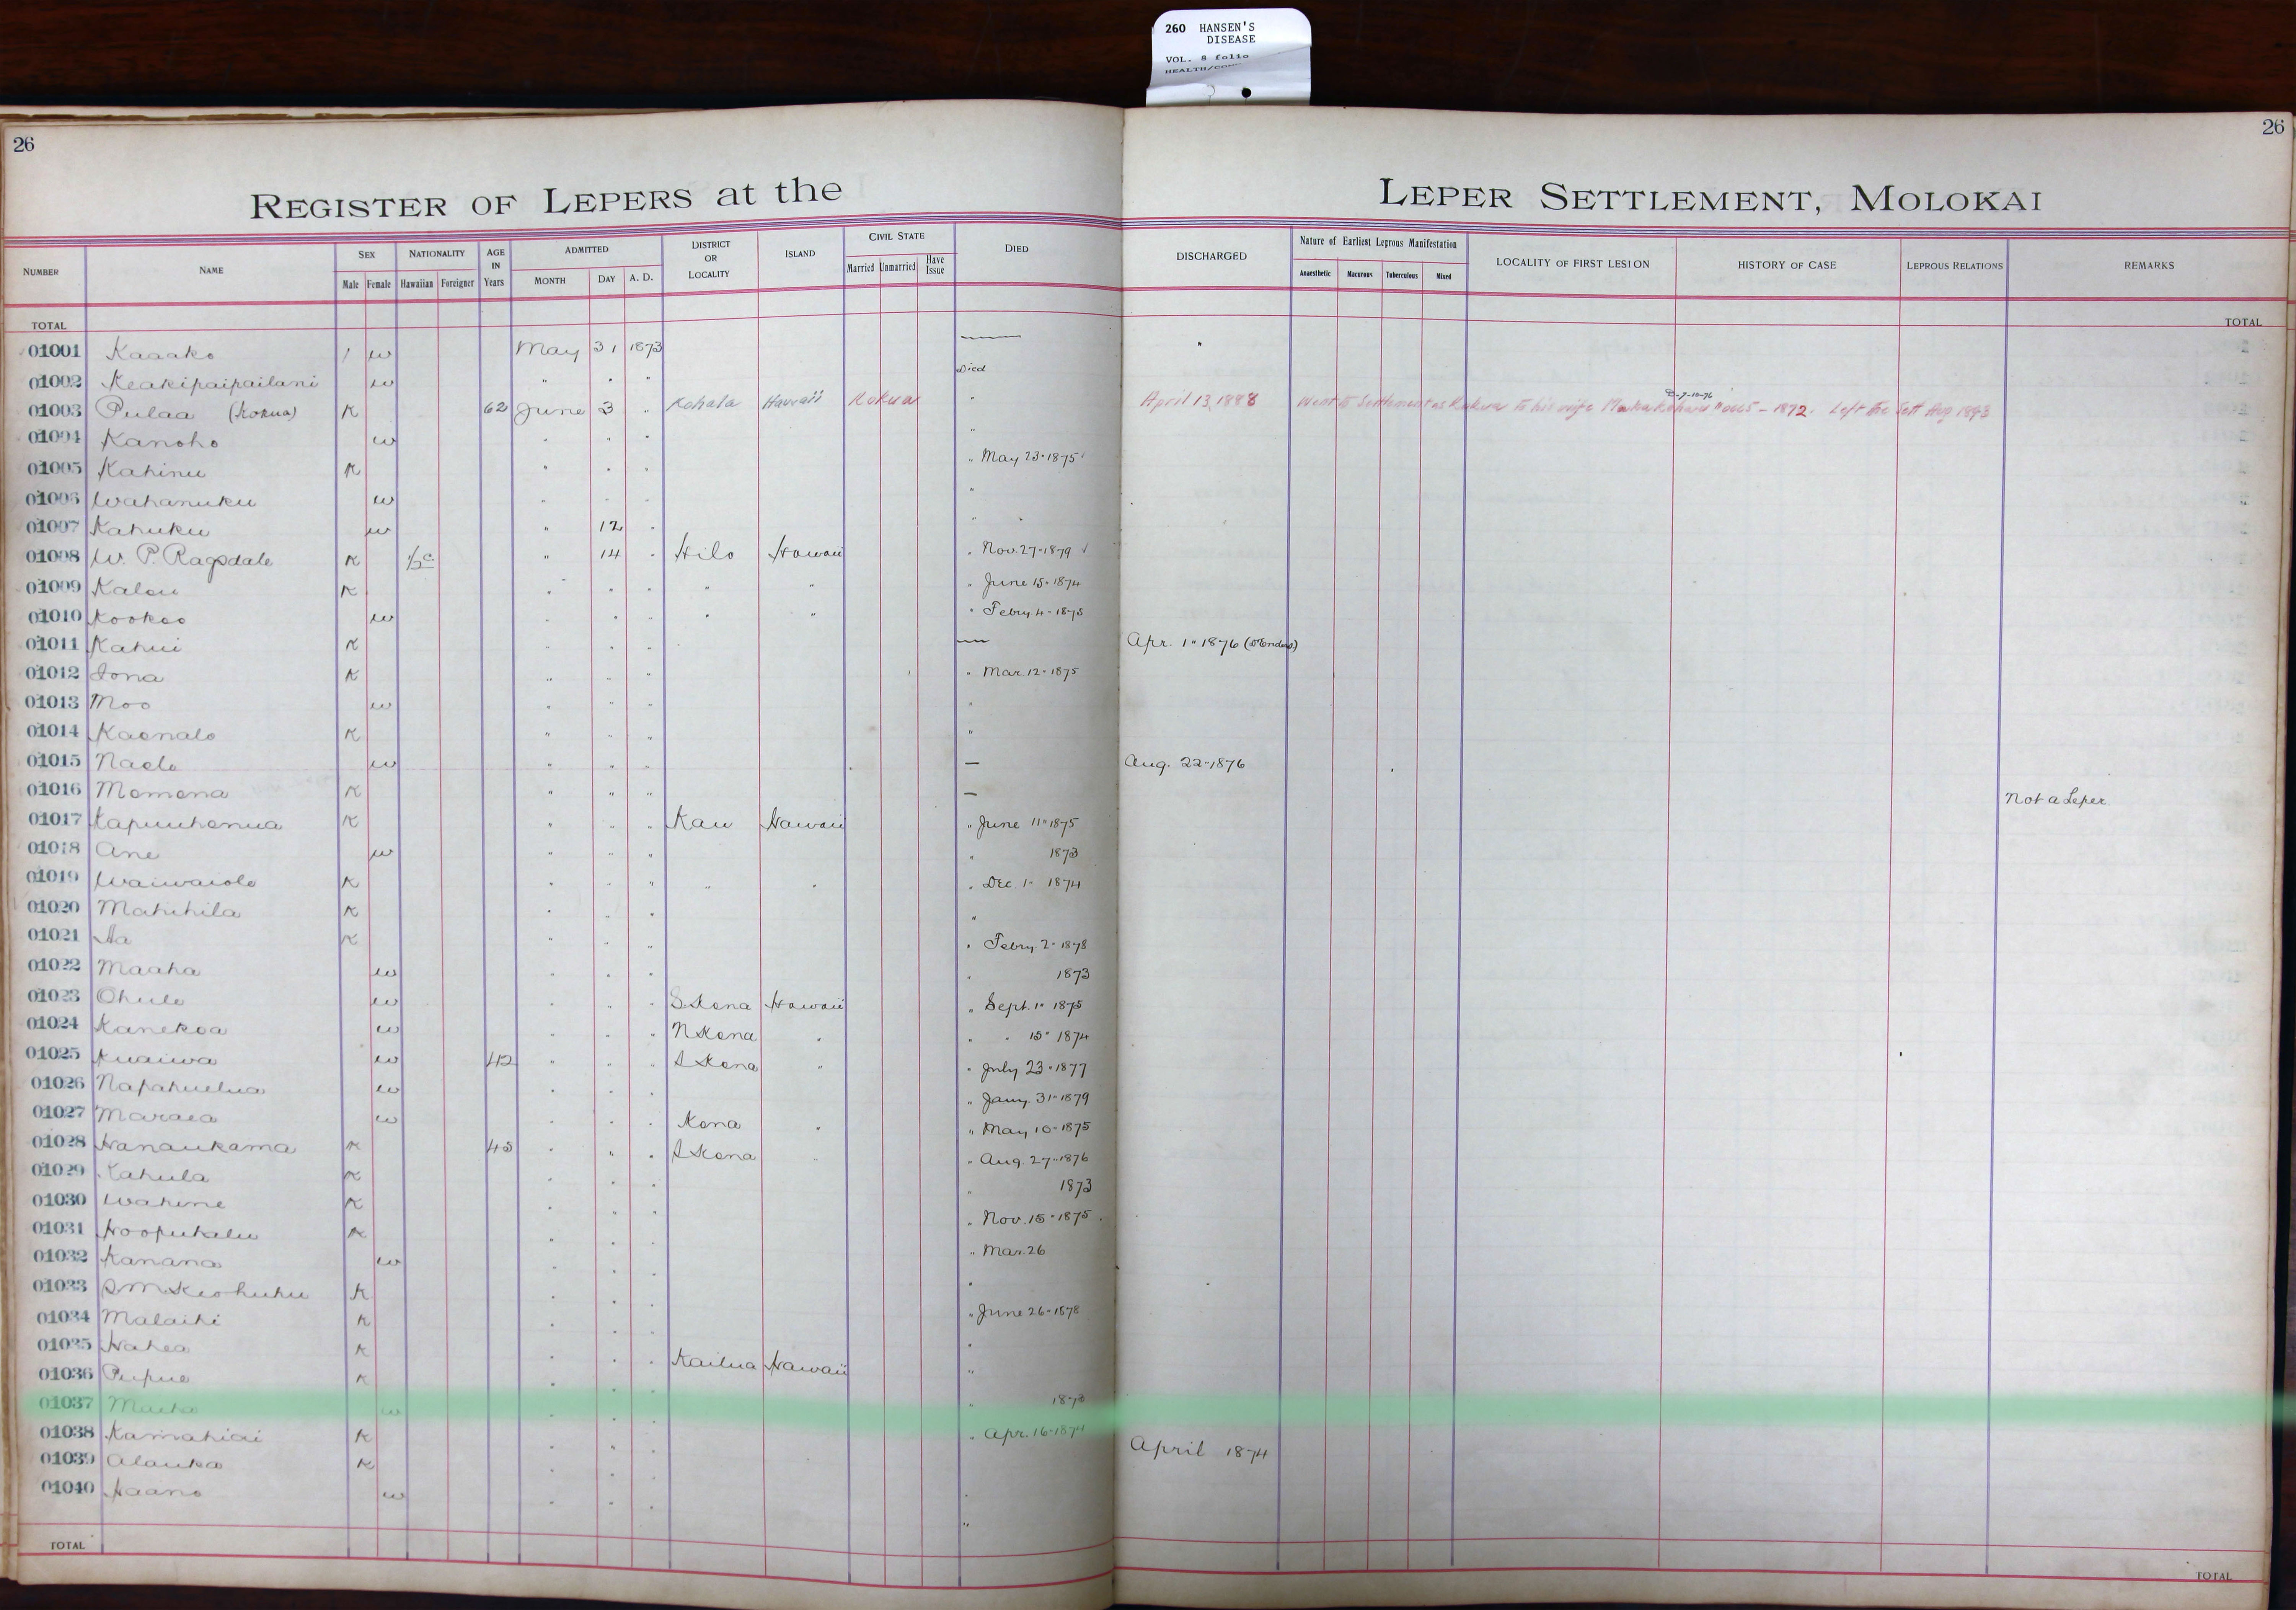 260 HANSEN'S
DISEASE
VOL. 8 folio
26
26
REGISTER OF LEPERS at the LEPER SETTLEMENT, MOLOKAI
NUMBER NAME SEX Male Female NATIONALITY Hawaiian Foreigner AGE IN Years ADMITTED MONTH DAY A. D. DISTRICT OR LOCALITY ISLAND CIVIL STATE Married Unmarried Have Issue DIED DISCHARGED Nature of Earliest Leprous Manifestation Anaesthetic Macurous Tuberculous Mixed LOCALITY OF FIRST LESION HISTORY OF CASE LEPROUS RELATIONS REMARKS
TOTAL TOTAL
01001 Kaaako / w May 31 1873 —
01002 Keakipaipailani w " " " Died
01003 Pulaa (Kokua) K 62 June 3 " Kohala Hawaii Kokua " April 13, 1888 Went to Settlement as Kokua to his wife 1872. Left the Sett Aug 1893
01004 Kanoho w " " " "
01005 Kahinu K " " " " May 23 " 1875
01006 Wahanuku w " " " "
01007 Kahuku w " 12 " "
01008 W. P. Ragsdale K ½ c " 14 " Hilo Hawaii " Nov. 27 " 1879
01009 Kalou K " " " " " " June 15 " 1874
01010 Kookoo w " " " " " " Febry 4 - 1875
01011 Kahui K " " " — Apr. 1 " 1876
01012 Iona K " " " " Mar. 12 " 1875
01013 Moo w " " " "
01014 Kaonalo K " " " "
01015 Naelo w " " " — Aug. 22 - 1876
01016 Momona K " " " — Not a Leper
01017 Kapuuhonua K " " " Kau Hawaii " June 11 " 1875
01018 Ane w " " " " 1873
01019 Waiwaiole K " " " " " " Dec. 1 - 1874
01020 Mahihila K " " " "
01021 Aa K " " " " Febry. 2 " 1878
01022 Maaha w " " " " 1873
01023 Ohule w " " " S. Kona Hawaii " Sept. 1 " 1875
01024 Kanekoa w " " " N Kona " " " 15 " 1874
01025 Kuaiwa w 42 " " " S Kona " " July 23 " 1877
01026 Napahuelua w " " " " Jany. 31 " 1879
01027 Maraea w " " " Kona " " May 10 " 1875
01028 Hanaukama K 45 " " " S Kona " " Aug. 27 " 1876
01029 Kahula K " " " " 1873
01030 Wahine K " " " " Nov. 15 " 1875
01031 Hoopukalu K " " " " Mar. 26
01032 Kanana w " " " "
01033 S M Keohuhu K " " " " June 26 " 1878
01034 Malaihi K " " " "
01035 Hahea K " " " Kailua Hawaii "
01036 Pupue K " " " " 1873
01037 w " " " " Apr. 16 - 1874
01038 Kamahiai K " " " April 1874
01039 Alauka K " " " "
01040 Haano w " " " "
TOTAL TOTAL